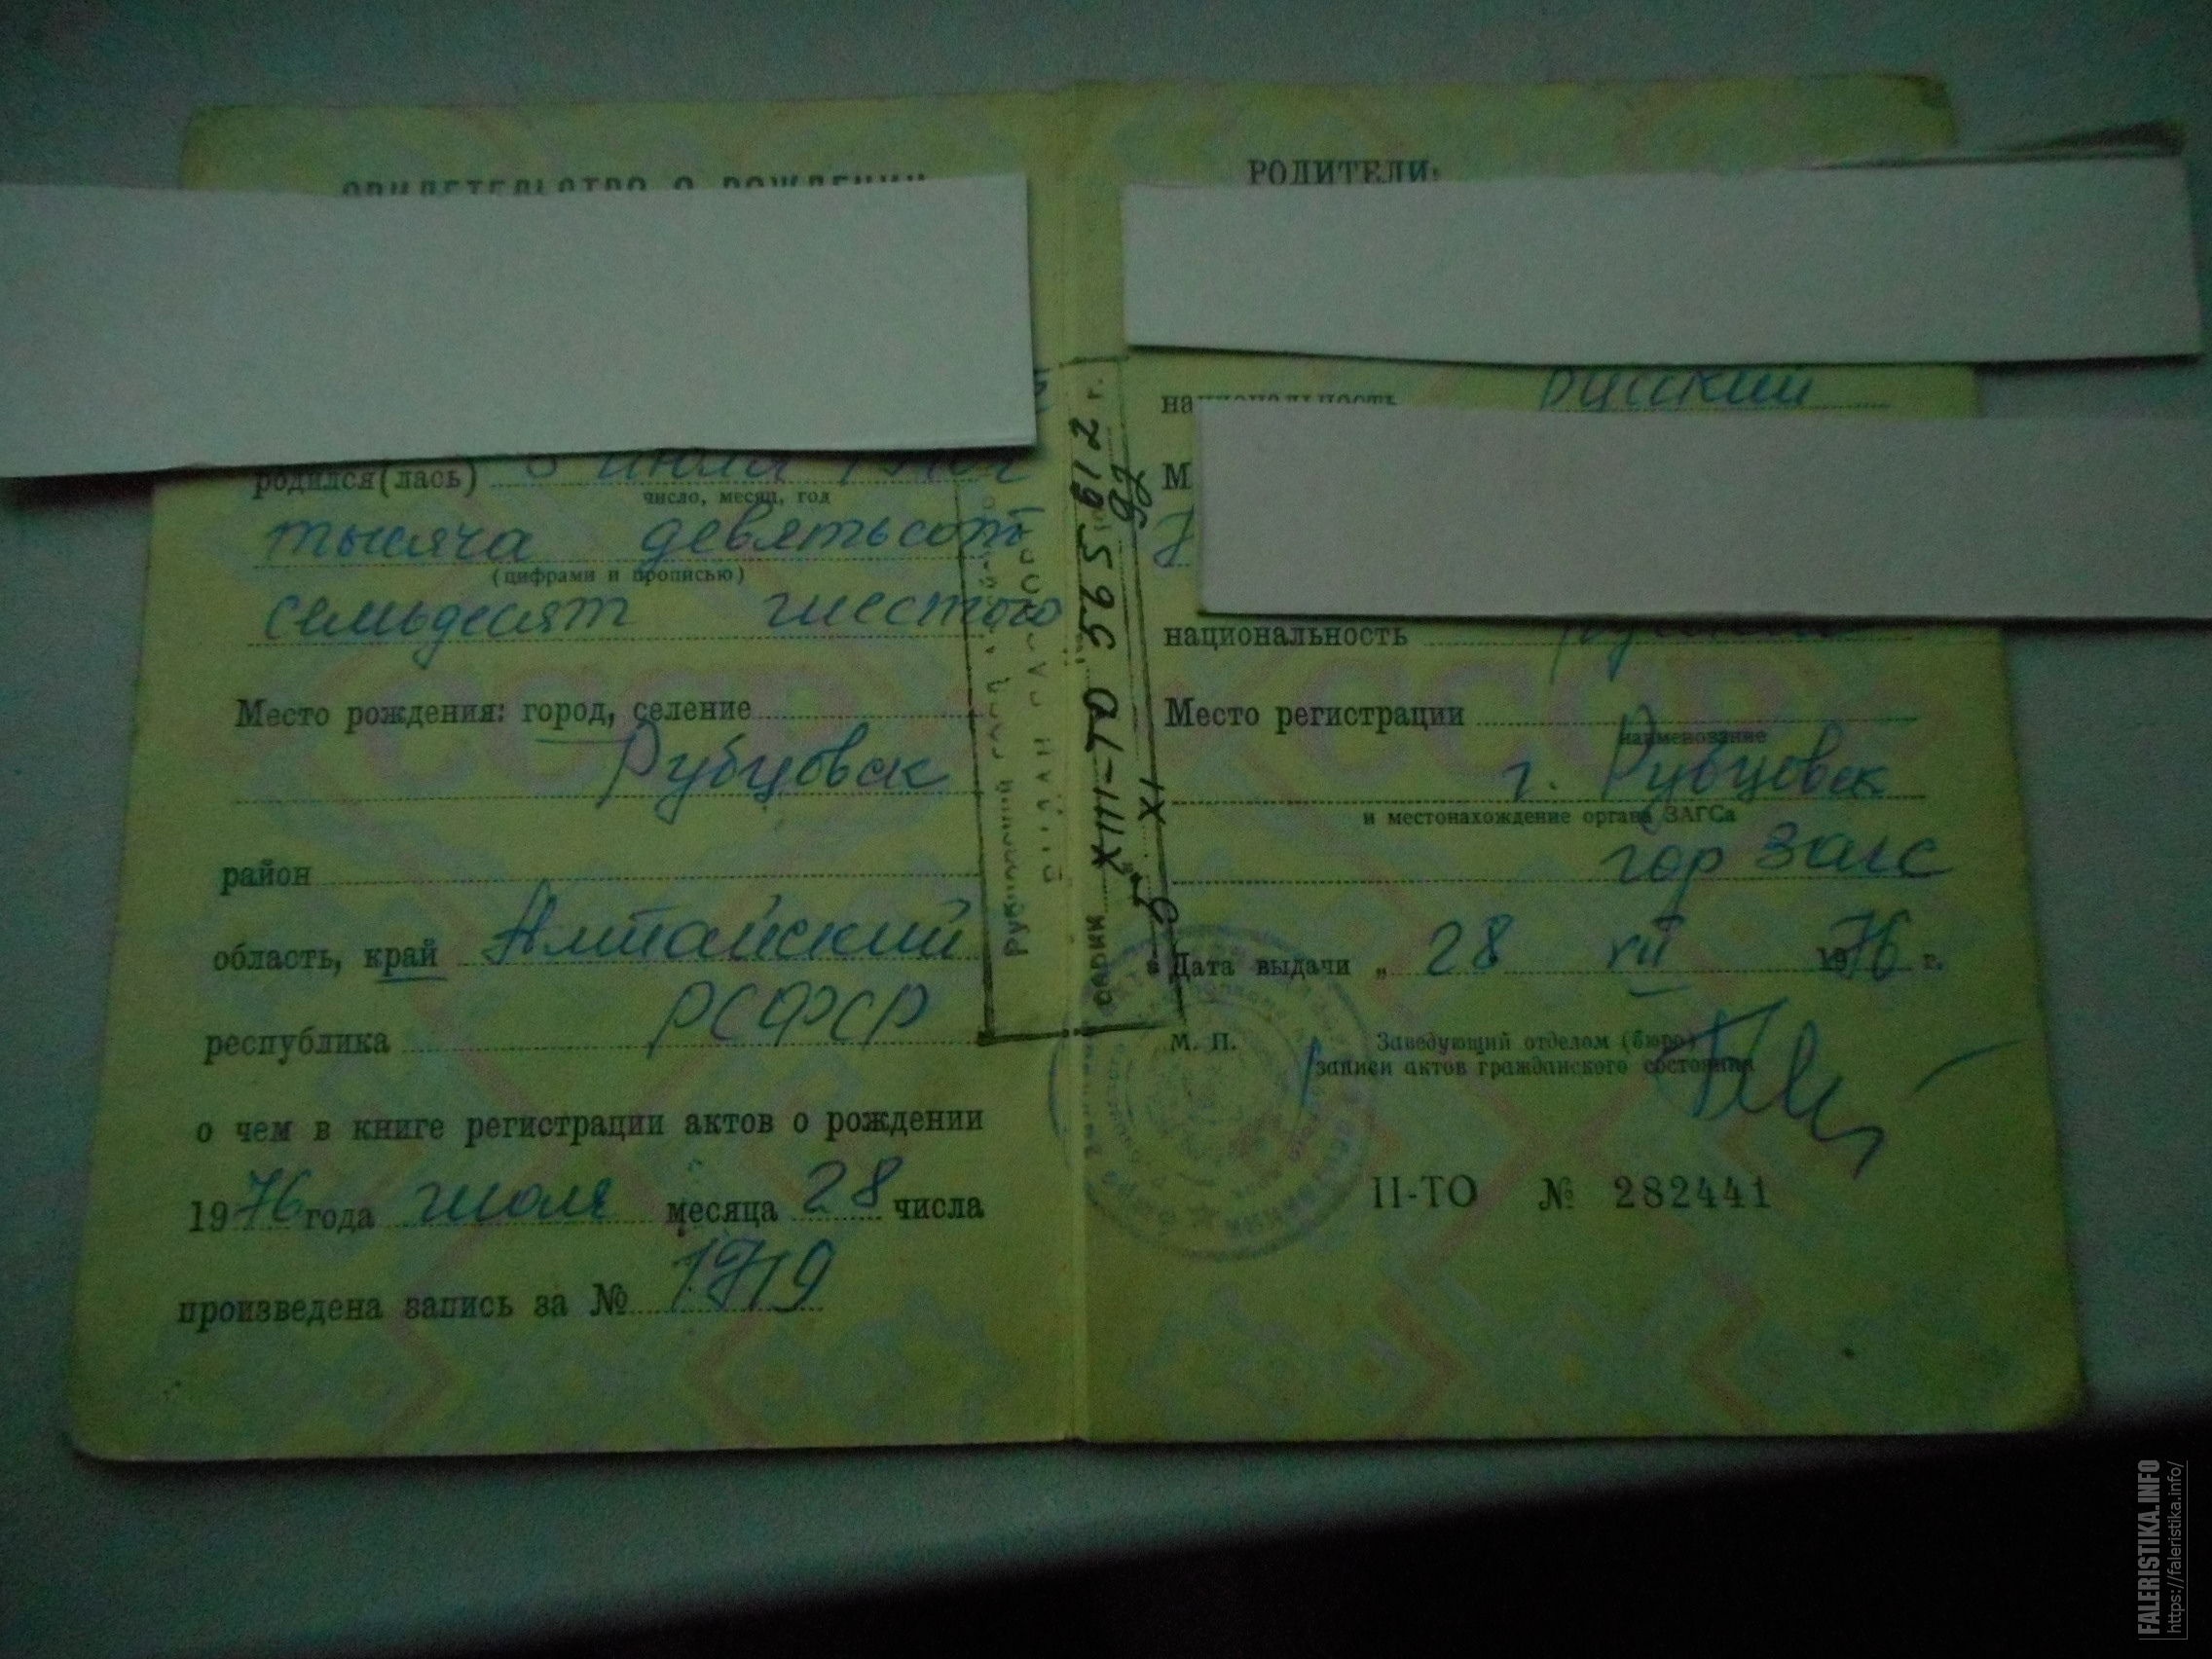 СВИДЕТЕЛЬСТВО О РОЖДЕНИИ
родился(лась) июля
число, месяц, год
тысяча девятьсот
(цифрами и прописью)
семьдесят шестого
Место рождения: город, селение
Рубцовск
район
область, край Алтайский
республика РСФСР
о чем в книге регистрации актов о рождении
1976 года июля месяца 28 числа
произведена запись за № 1719
ВЫДАН ПАСПОРТ
серии XIII-ТО 569512
РОДИТЕЛИ:
национальность русский
М
национальность
Место регистрации
наименование
г. Рубцовск
и местонахождение органа ЗАГСа
гор Загс
Дата выдачи „ 28 VII 1976 г.
М. П. Заведующий отделом (бюро)
записи актов гражданского состояния
II-ТО № 282441
FALERISTIKA.INFO
https://faleristika.info/